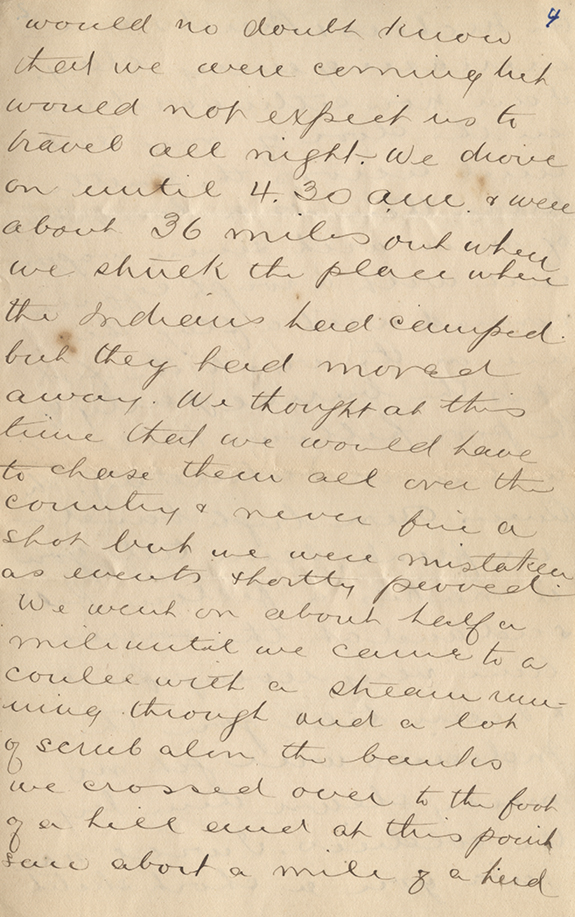 4
would no doubt know
that we were coming but
would not expect us to
travel all night. We drove
on until 4.30 a.m. & were
about 36 miles out when
we struck the place where
the Indians had camped.
but they had moved
away. We thought at this
time that we would have
to chase them all over the
country & never fire a
shot but we were mistaken
as events shortly proved.
We went on about half a
mile until we came to a
coulee with a stream run-
ning through and a lot
of scrub alon the banks
we crossed over to the foot
of a hill and at this point
saw about a mile of a